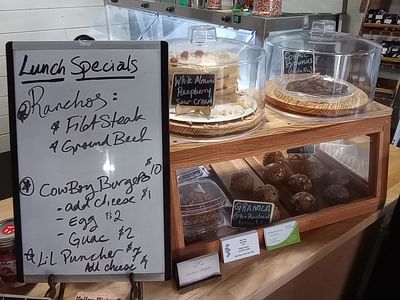 Lunch Specials
Ranchos:
Flat Steak
Ground Beef
$
CowBoy Burgers 10
- add cheese $1
- Egg $2
- Guac $2
Lil Puncher $7
Add cheese $1
White Almond
Raspberry
Sour Cream
Brownies
GRANOLA